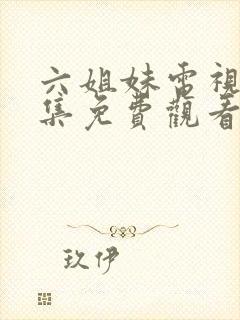 六姐妹电視
集免費觀看
玖伊